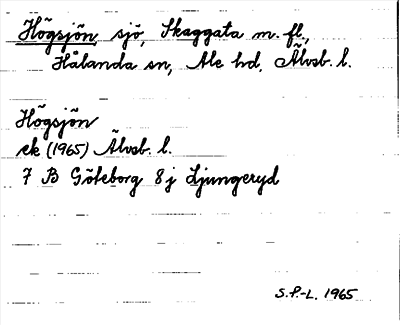 Högsjön, sjö, Skaggata m. fl.,
Hålanda sn, Ale hd, Älvsb. l.
Högsjön
ek (1965) Älvsb. l.
7 B Göteborg 8 j Ljungeryd
S.P.-L. 1965